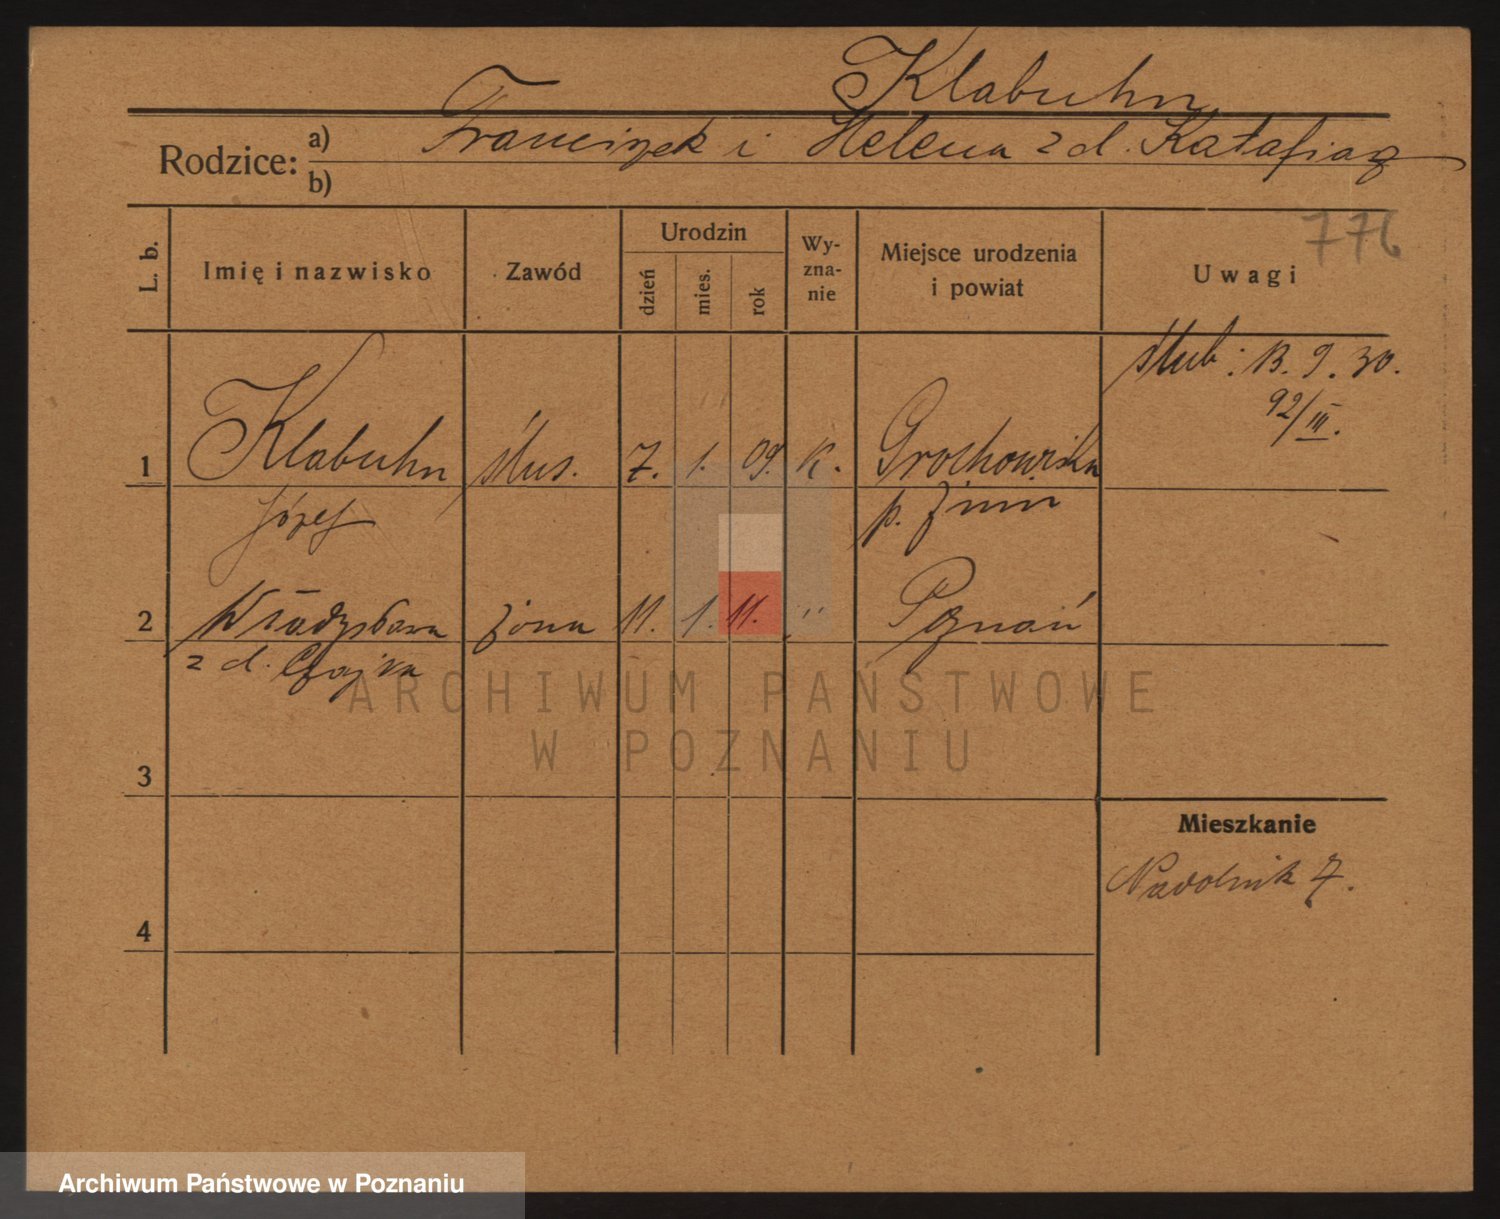 Klabuhn
Rodzice: a) Franciszek i Helena z d. Katafiaz
b)
776
L. b.
Imię i nazwisko
Zawód
Urodzin
dzień
mies.
rok
Wy-
zna-
nie
Miejsce urodzenia
i powiat
Uwagi
ślub: 13. 9. 30.
92/III.
1 Klabuhn ślus. 7. 1. 09. K. Grochowiska
Józef p. Żnin
2 Władysława żona 11. 1. 11. " Poznań
z d. Czajka
ARCHIWUM PAŃSTWOWE
W POZNANIU
3
Mieszkanie
Nadolnik 7.
4
Archiwum Państwowe w Poznaniu